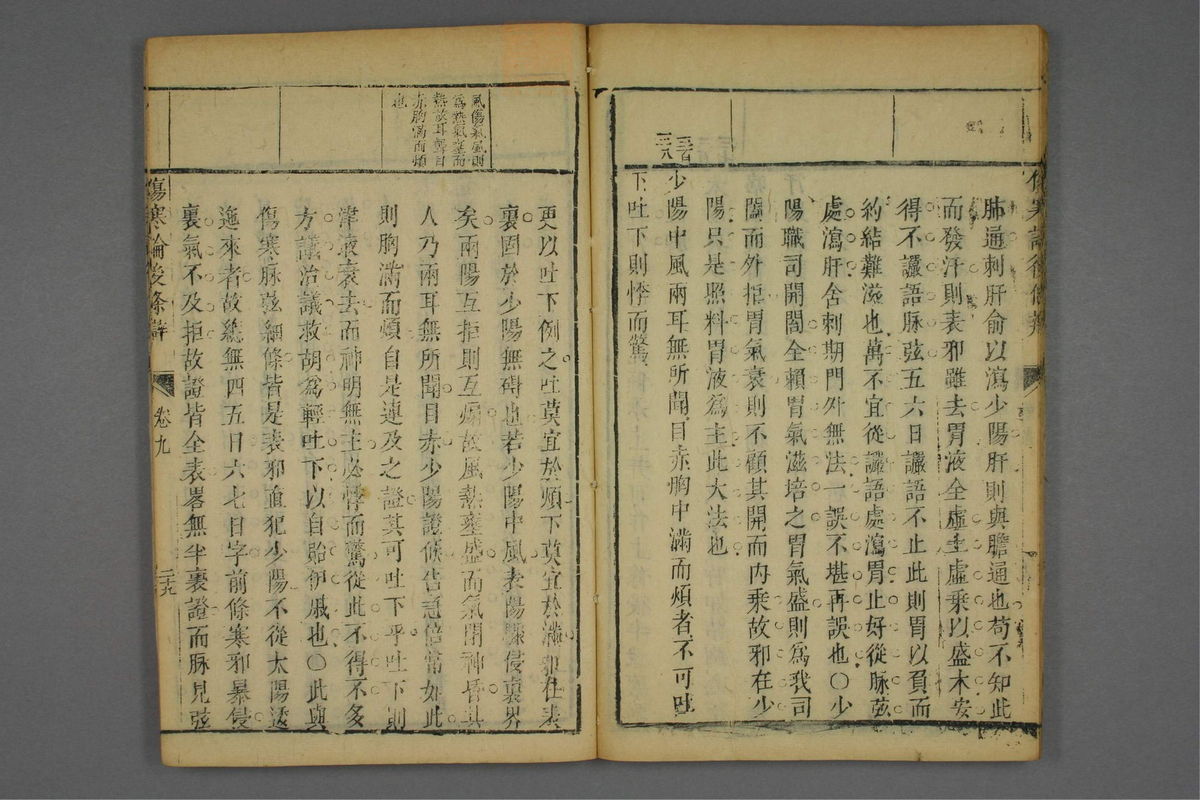 肺通刺肝俞以瀉少陽肝則與膽通也苟不知此
而發汗則表邪雖去胃液全虛土虛乘以盛木安
得不讝語脉弦五六日讝語不止此則胃以負而
約結難滋也萬不宜從讝語處瀉胃止好從脉弦
處瀉肝舍刺期門外無法一誤不堪再誤也〇少
陽職司開闔全賴胃氣滋培之胃氣盛則為我司
闔而外拒胃氣衰則不顧其開而內乘故邪在少
陽只是照料胃液為主此大法也
少陽中風兩耳無所聞目赤胸中滿而煩者不可吐
下吐下則悸而驚
風傷氣風則
為熱氣壅而
熱故耳聾目
赤胸滿而煩
也
更以吐下例之吐莫宜於煩下莫宜於滿邪在表
裏固於少陽無碍也若少陽中風表陽驟侵裏界
矣兩陽互拒則互煽故風熱壅盛而氣閉神昏其
人乃兩耳無所聞目赤少陽證候告急倍常如此
則胸滿而煩自是連及之證其可吐下乎吐下則
津液衰去而神明無主必悸而驚從此不得不多
方議治議救胡為輕吐下以自貽伊戚也〇此與
傷寒脉弦細條皆是表邪直犯少陽不從太陽透
迤來者故總無四五日六七日字前條寒邪暴侵
裏氣不及拒故證皆全表畧無半裏證而脉見弦
傷寒論後條辨
卷九
二十九